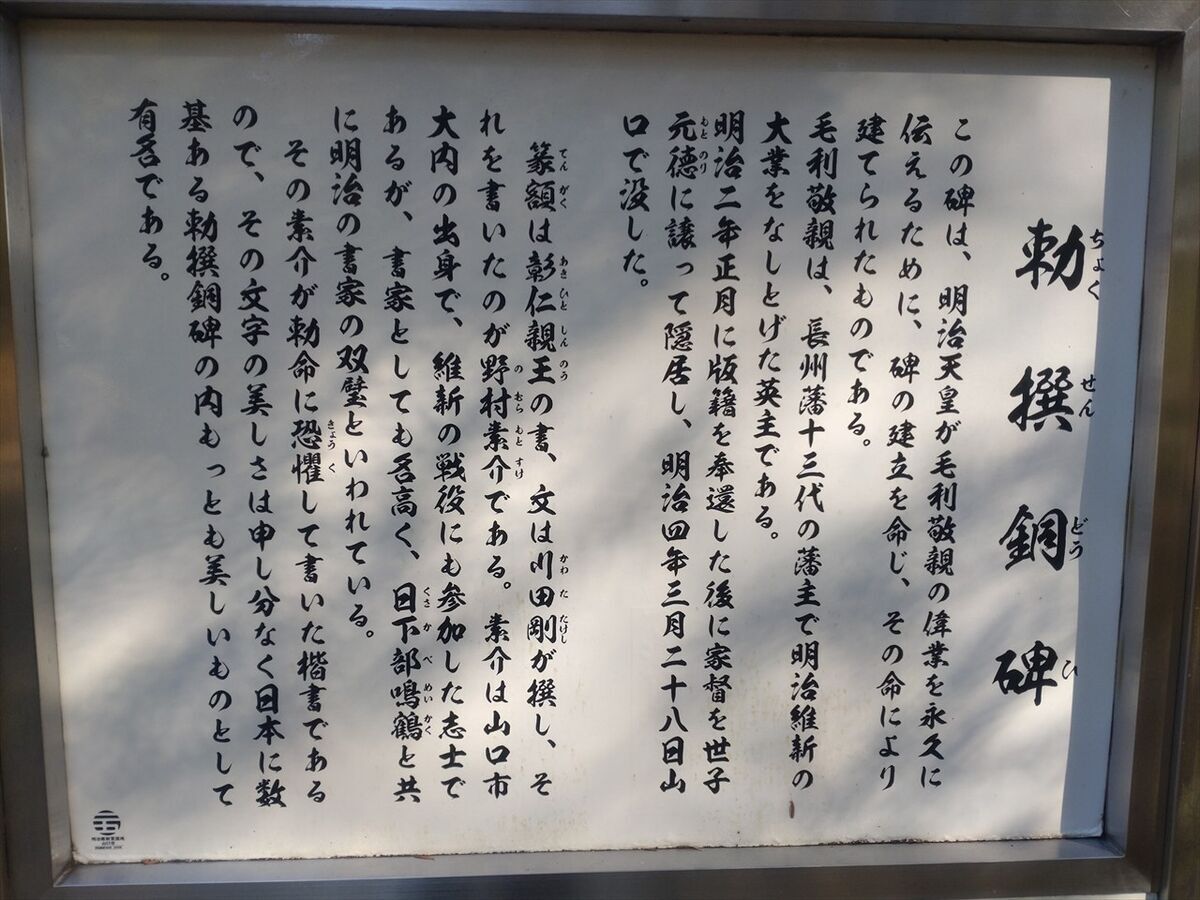 勅撰銅碑
ちょくせんどうひ
この碑は、明治天皇が毛利敬親の偉業を永久に
伝えるために、碑の建立を命じ、その命により
建てられたものである。
毛利敬親は、長州藩十三代の藩主で明治維新の
大業をなしとげた英主である。
明治二年正月に版籍を奉還した後に家督を世子
元徳に譲って隠居し、明治四年三月二十八日山
もとのり
口で没した。
篆額は彰仁親王の書、文は川田剛が撰し、そ
てんがく あきひとしんのう かわたたけし
れを書いたのが野村素介である。素介は山口市
のむらもとすけ
大内の出身で、維新の戦役にも参加した志士で
あるが、書家としても名高く、日下部鳴鶴と共
くさかべめいかく
に明治の書家の双璧といわれている。
その素介が勅命に恐懼して書いた楷書である
きょうく
ので、その文字の美しさは申し分なく日本に数
基ある勅撰銅碑の内もっとも美しいものとして
有名である。